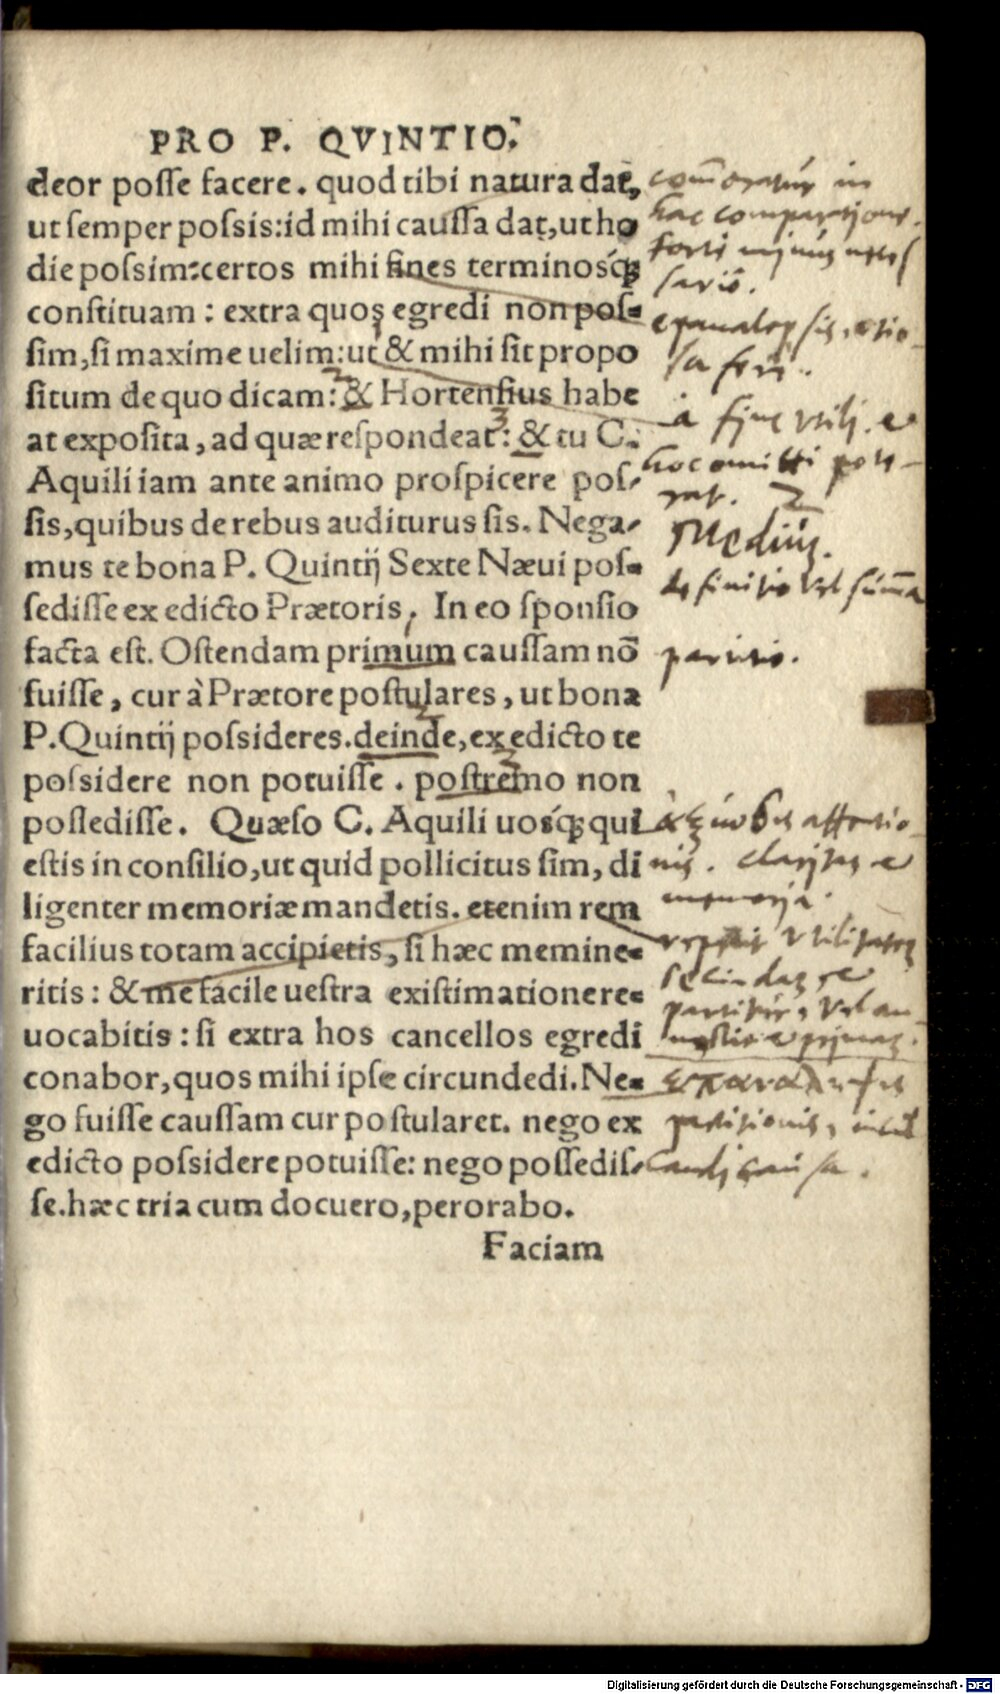 PRO P. QVINTIO.
deor posse facere. quod tibi natura dat,
ut semper possis: id mihi caussa dat, ut ho
die possim: certos mihi fines terminosq́;
constituam: extra quos egredi non pos-
sim, si maxime uelim: ut & mihi sit propo
situm de quo dicam: & Hortensius habe
at exposita, ad quæ respondeat: & tu C.
Aquili iam ante animo prospicere pos-
sis, quibus de rebus auditurus sis. Nega-
mus te bona P. Quintij Sexte Næui pos-
sedisse ex edicto Prætoris, In eo sponsio
facta est. Ostendam primum caussam nō
fuisse, cur à Prætore postulares, ut bona
P. Quintij possideres. deinde, ex edicto te
possidere non potuisse. postremo non
possedisse. Quæso C. Aquili uosq́; qui
estis in consilio, ut quid pollicitus sim, di
ligenter memoriæ mandetis. etenim rem
facilius totam accipietis, si hæc memine-
ritis: & me facile uestra existimatione re-
uocabitis: si extra hos cancellos egredi
conabor, quos mihi ipse circundedi. Ne-
go fuisse caussam cur postularet. nego ex
edicto possidere potuisse: nego possedis-
se. hæc tria cum docuero, perorabo.
Faciam
in
hac comparatione
forte minus neces
sario.
epanalepsis, otio-
sa fere.
à fine utili. et
hoc omitti pote-
rat. 2
Medium.
definitio vel summa
partitio.
claritas et
memoria.
utilitatem
secundam, et
vel am
primam.
partitionis, incul
candi causa.
2
3
2
3
Digitalisierung gefördert durch die Deutsche Forschungsgemeinschaft - DFG